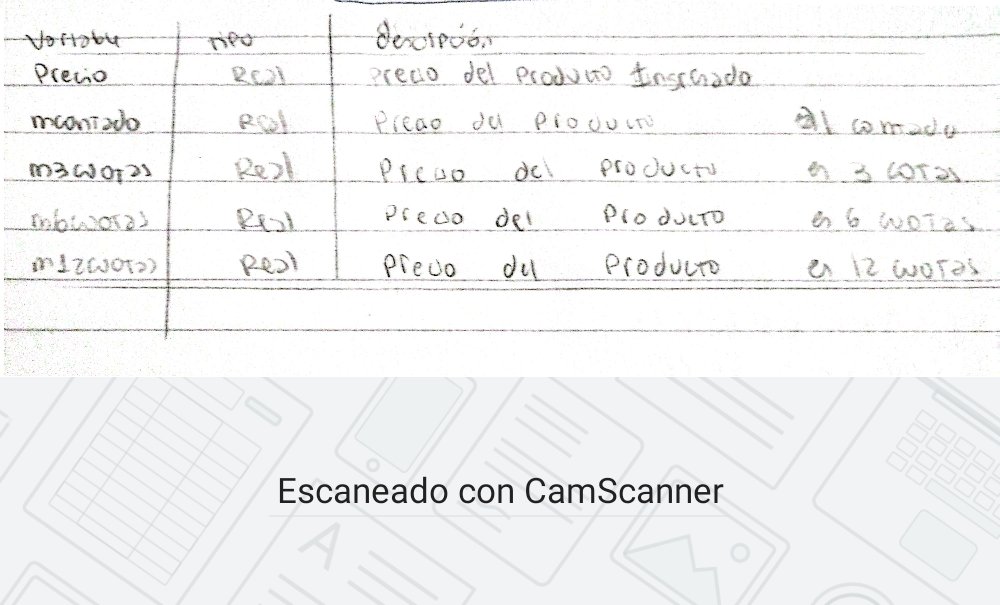 Variable tipo descripción
Precio Real Precio del Producto Ingresado
mcontado Real Precio del Producto al contado
m3cuotas Real Precio del Producto en 3 cuotas
m6cuotas Real Precio del Producto en 6 cuotas
m12cuotas Real Precio del Producto en 12 cuotas
Escaneado con CamScanner